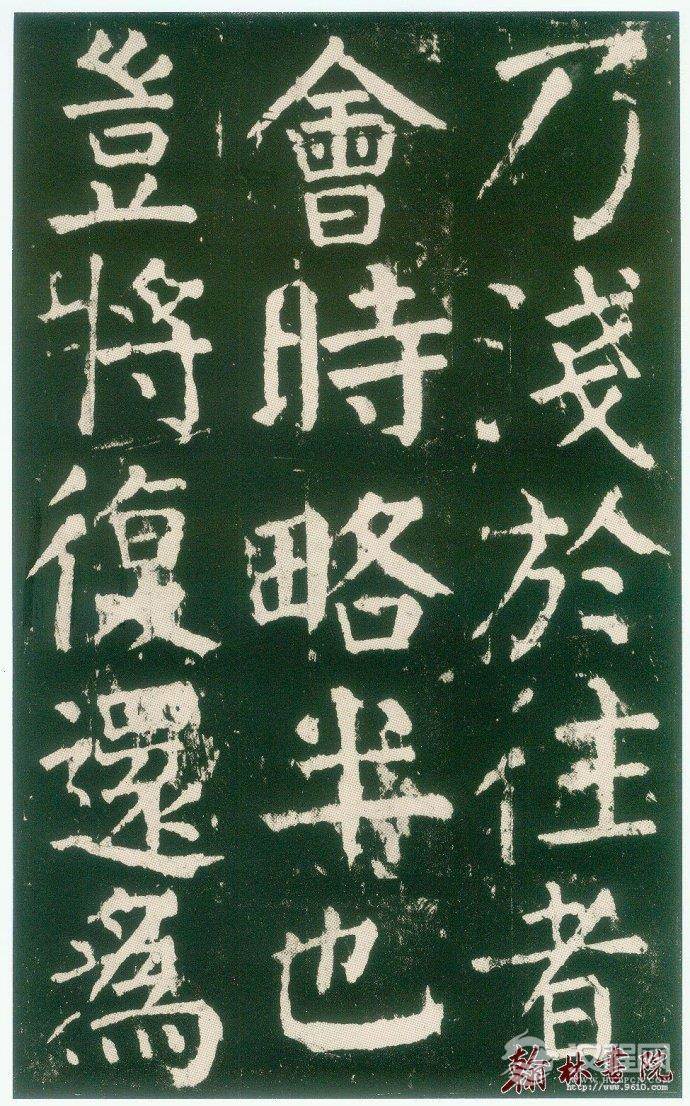 乃淺於往者
會時略半也
豈將復還為
翰林書院
http://www.9610.com